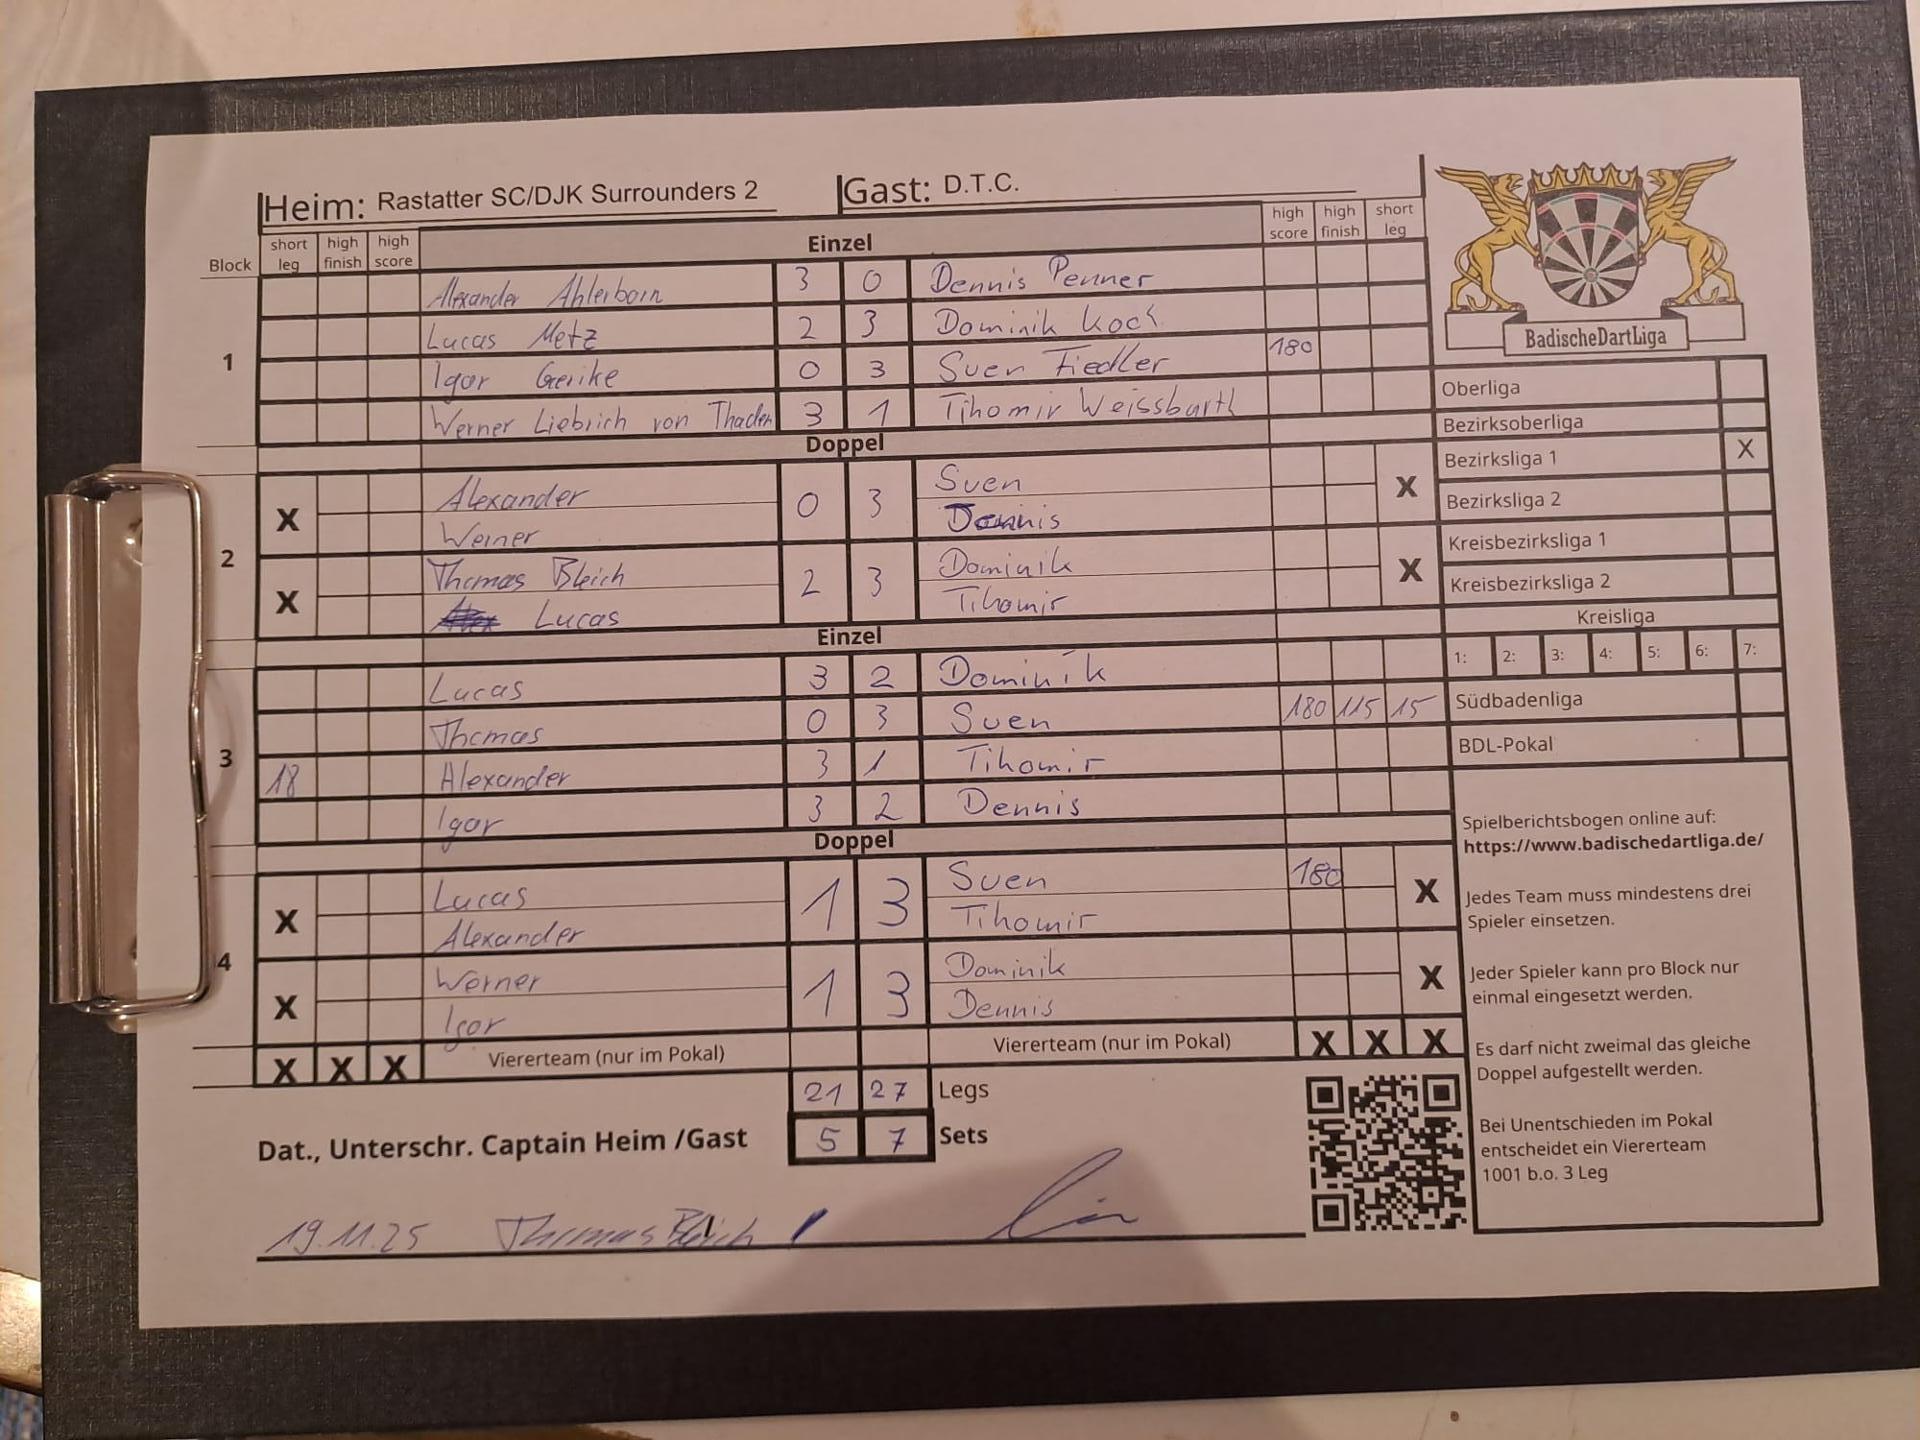 Heim: Rastatter SC/DJK Surrounders 2 Gast: D.T.C.
Block short leg high finish high score Einzel high score high finish short leg
1
Alexander Ahlerborn 3 0 Dennis Penner
Lucas Metz 2 3 Dominik Koch
Igor Gerike 0 3 Sven Fiedler 180
Werner Liebrich von Thaden 3 1 Tihomir Weissbarth
Doppel
2
X Alexander 0 3 Sven X
Werner Dennis
X Thomas Bleich 2 3 Dominik X
Lucas Tihomir
Einzel
3
Lucas 3 2 Dominik
Thomas 0 3 Sven 180 115 15
18 Alexander 3 1 Tihomir
Igor 3 2 Dennis
Doppel
4
X Lucas 1 3 Sven 180 X
Alexander Tihomir
X Werner 1 3 Dominik X
Igor Dennis
X X X Viererteam (nur im Pokal) Viererteam (nur im Pokal) X X X
21 27 Legs
5 7 Sets
Dat., Unterschr. Captain Heim /Gast
19.11.25 Thomas Bleich
BadischeDartLiga
Oberliga
Bezirksoberliga
Bezirksliga 1 X
Bezirksliga 2
Kreisbezirksliga 1
Kreisbezirksliga 2
Kreisliga
1: 2: 3: 4: 5: 6: 7:
Südbadenliga
BDL-Pokal
Spielberichtsbogen online auf:
https://www.badischedartliga.de/
Jedes Team muss mindestens drei
Spieler einsetzen.
Jeder Spieler kann pro Block nur
einmal eingesetzt werden.
Es darf nicht zweimal das gleiche
Doppel aufgestellt werden.
Bei Unentschieden im Pokal
entscheidet ein Viererteam
1001 b.o. 3 Leg